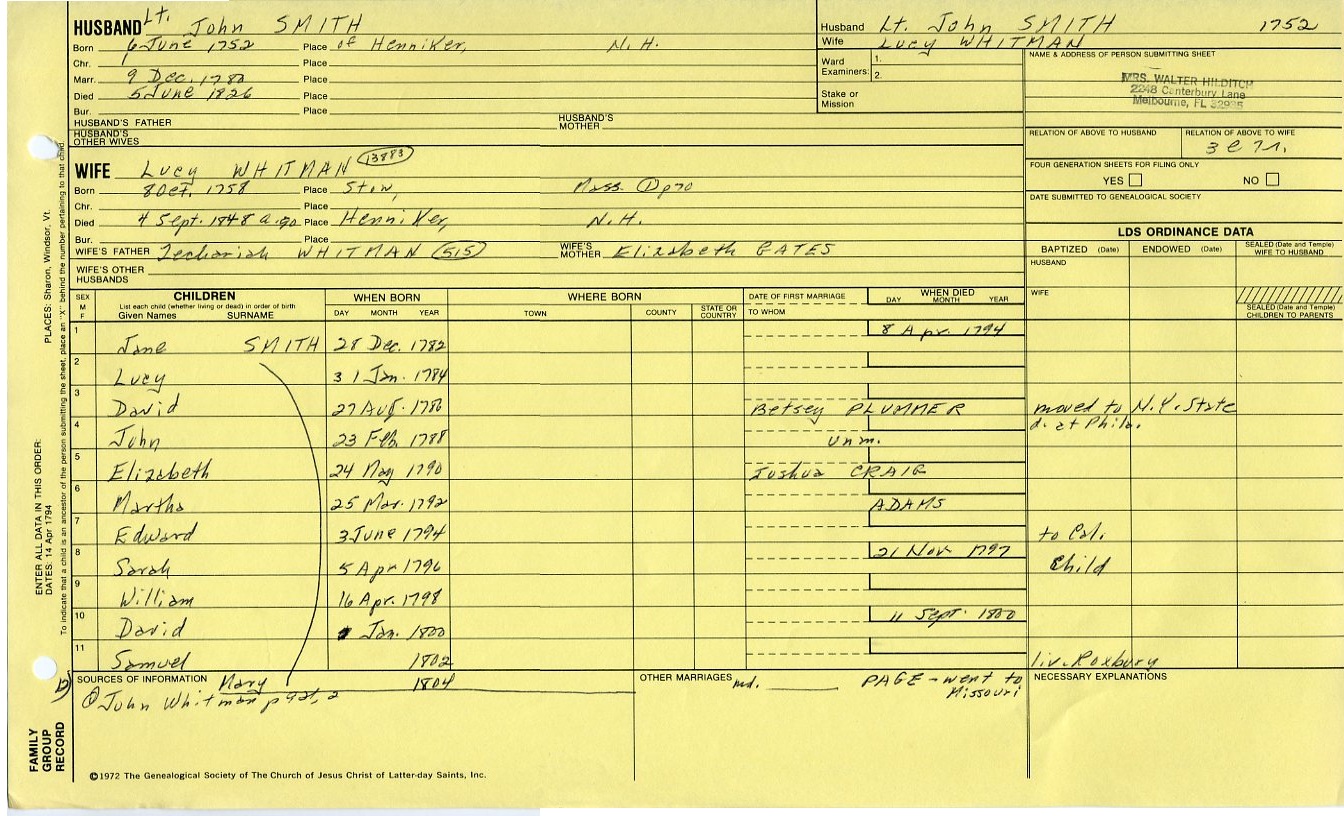 HUSBAND Lt. John SMITH
Born 6 June 1752 Place of Henniker, N.H.
Chr. Place
Marr. 9 Dec. 1780 Place
Died 5 June 1826 Place
Bur. Place
HUSBAND'S FATHER HUSBAND'S MOTHER
HUSBAND'S OTHER WIVES
Husband Lt. John SMITH 1752
Wife Lucy WHITMAN
Ward Examiners: 1.
2.
Stake or Mission
NAME & ADDRESS OF PERSON SUBMITTING SHEET
MRS. WALTER HILDITCH
2248 Canterbury Lane
Melbourne, FL 32935
RELATION OF ABOVE TO HUSBAND RELATION OF ABOVE TO WIFE
FOUR GENERATION SHEETS FOR FILING ONLY
YES NO
DATE SUBMITTED TO GENEALOGICAL SOCIETY
WIFE Lucy WHITMAN 13883
Born 8 Oct. 1758 Place Stow, Mass.
Chr. Place
Died 4 Sept. 1848 a. 90 Place Henniker, N.H.
Bur. Place
WIFE'S FATHER Zechariah WHITMAN 515 WIFE'S MOTHER Elizabeth GATES
WIFE'S OTHER HUSBANDS
LDS ORDINANCE DATA
BAPTIZED (Date) ENDOWED (Date) SEALED (Date and Temple) WIFE TO HUSBAND
HUSBAND
WIFE
SEALED (Date and Temple) CHILDREN TO PARENTS
SEX M F CHILDREN List each child (whether living or dead) in order of birth Given Names SURNAME
WHEN BORN DAY MONTH YEAR
WHERE BORN TOWN COUNTY STATE OR COUNTRY
DATE OF FIRST MARRIAGE TO WHOM
WHEN DIED DAY MONTH YEAR
1 Jane SMITH 28 Dec. 1782 8 Apr. 1794
2 Lucy 31 Jan. 1784
3 David 27 Aug. 1786 Betsey PLUMMER moved to N.Y. State
4 John 23 Feb 1788 unm. d. at Phila.
5 Elizabeth 24 May 1790 Joshua CRAIG
6 Martha 25 Mar. 1792 ADAMS
7 Edward 3 June 1794 to Cal.
8 Sarah 5 Apr 1796 21 Nov 1797 Child
9 William 16 Apr. 1798
10 David Jan. 1800 11 Sept. 1800
11 Samuel 1802 liv. Roxbury
12 Mary 1804 md. PAGE - went to Missouri
SOURCES OF INFORMATION
John Whitman
OTHER MARRIAGES
NECESSARY EXPLANATIONS
©1972 The Genealogical Society of The Church of Jesus Christ of Latter-day Saints, Inc.
FAMILY GROUP RECORD
ENTER ALL DATA IN THIS ORDER:
DATES: 14 Apr 1794
PLACES: Sharon, Windsor, Vt.
To indicate that a child is an ancestor of the person submitting the sheet, place an "X" behind the number pertaining to that child.